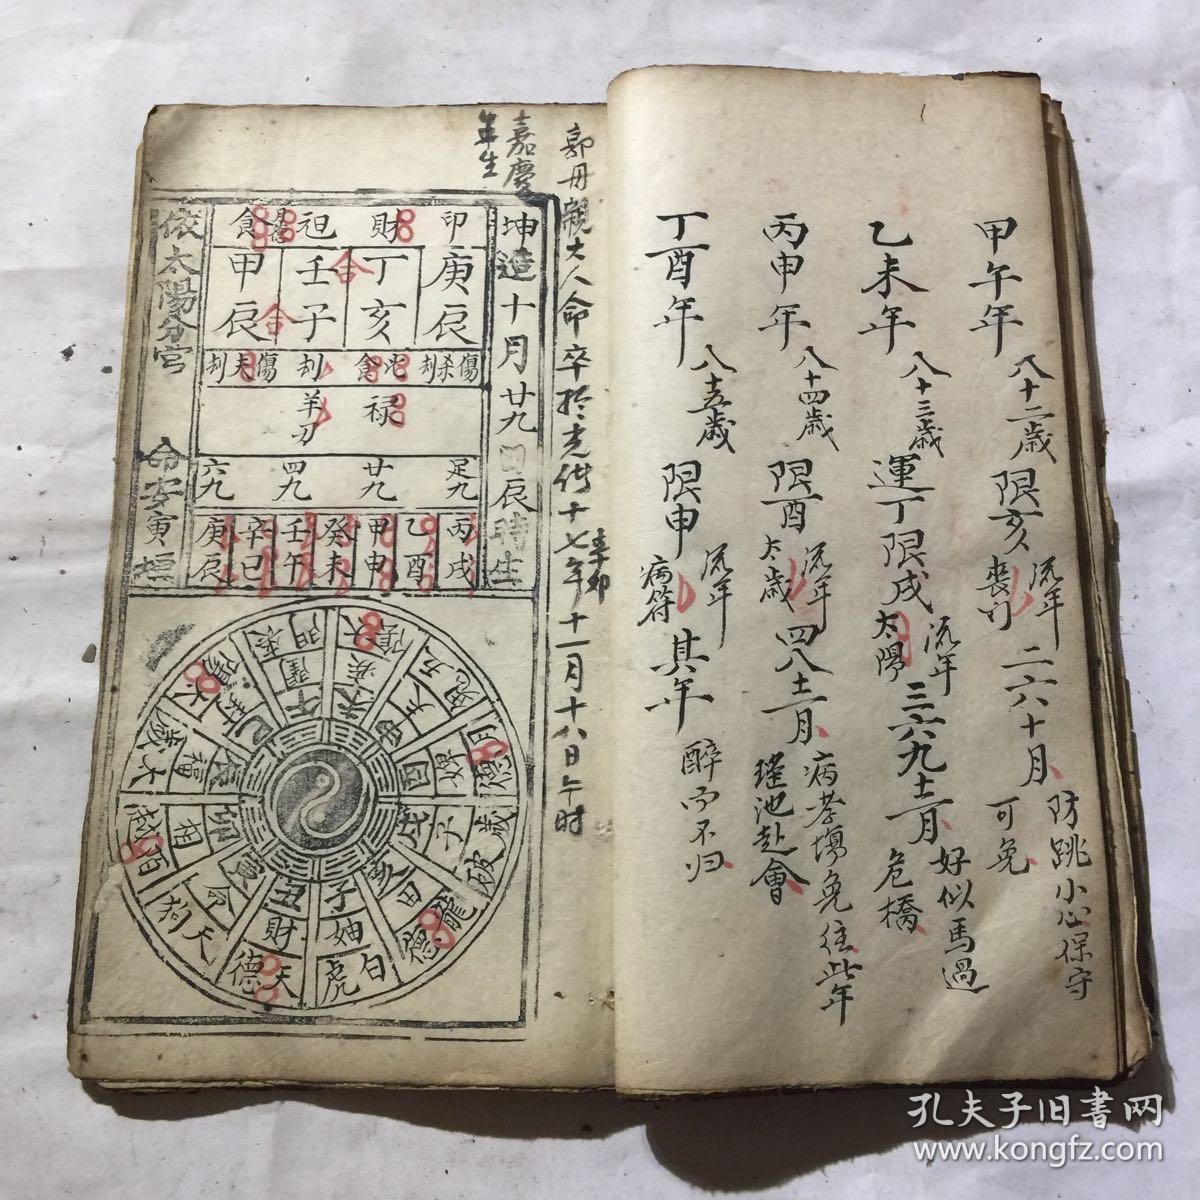 甲午年 八十二歲 限亥 流年 喪門 二六十月 防跳小心保守 可免
乙未年 八十三歲 運丁限戌 流年 太陽 三六九十二月 好似馬過危橋
丙申年 八十四歲 限酉 流年 太歲 四八十二月 病孝塲免往些年 瑤池赴會
丁酉年 八十五歲 限申 流年 病符 其年 醉而不归
郭母親大人命卒於光緒十七年辛卯十一月十八日午时
嘉慶年生
坤造十月廿九日辰時生
印 財 祖 食
庚辰 丁亥 壬子 甲辰
合 合
禄 羊刃
足九 廿九 四九 六九
丙戌 乙酉 甲申 癸未 壬午 辛巳 庚辰
依太陽分宮 命安寅垣
太陽
喪門
歲破
龍德
白虎
天德
太歲
子 丑 寅 卯 巳 午 未 酉 戌 亥
財 命 相 福
孔夫子旧書网
www.kongfz.com